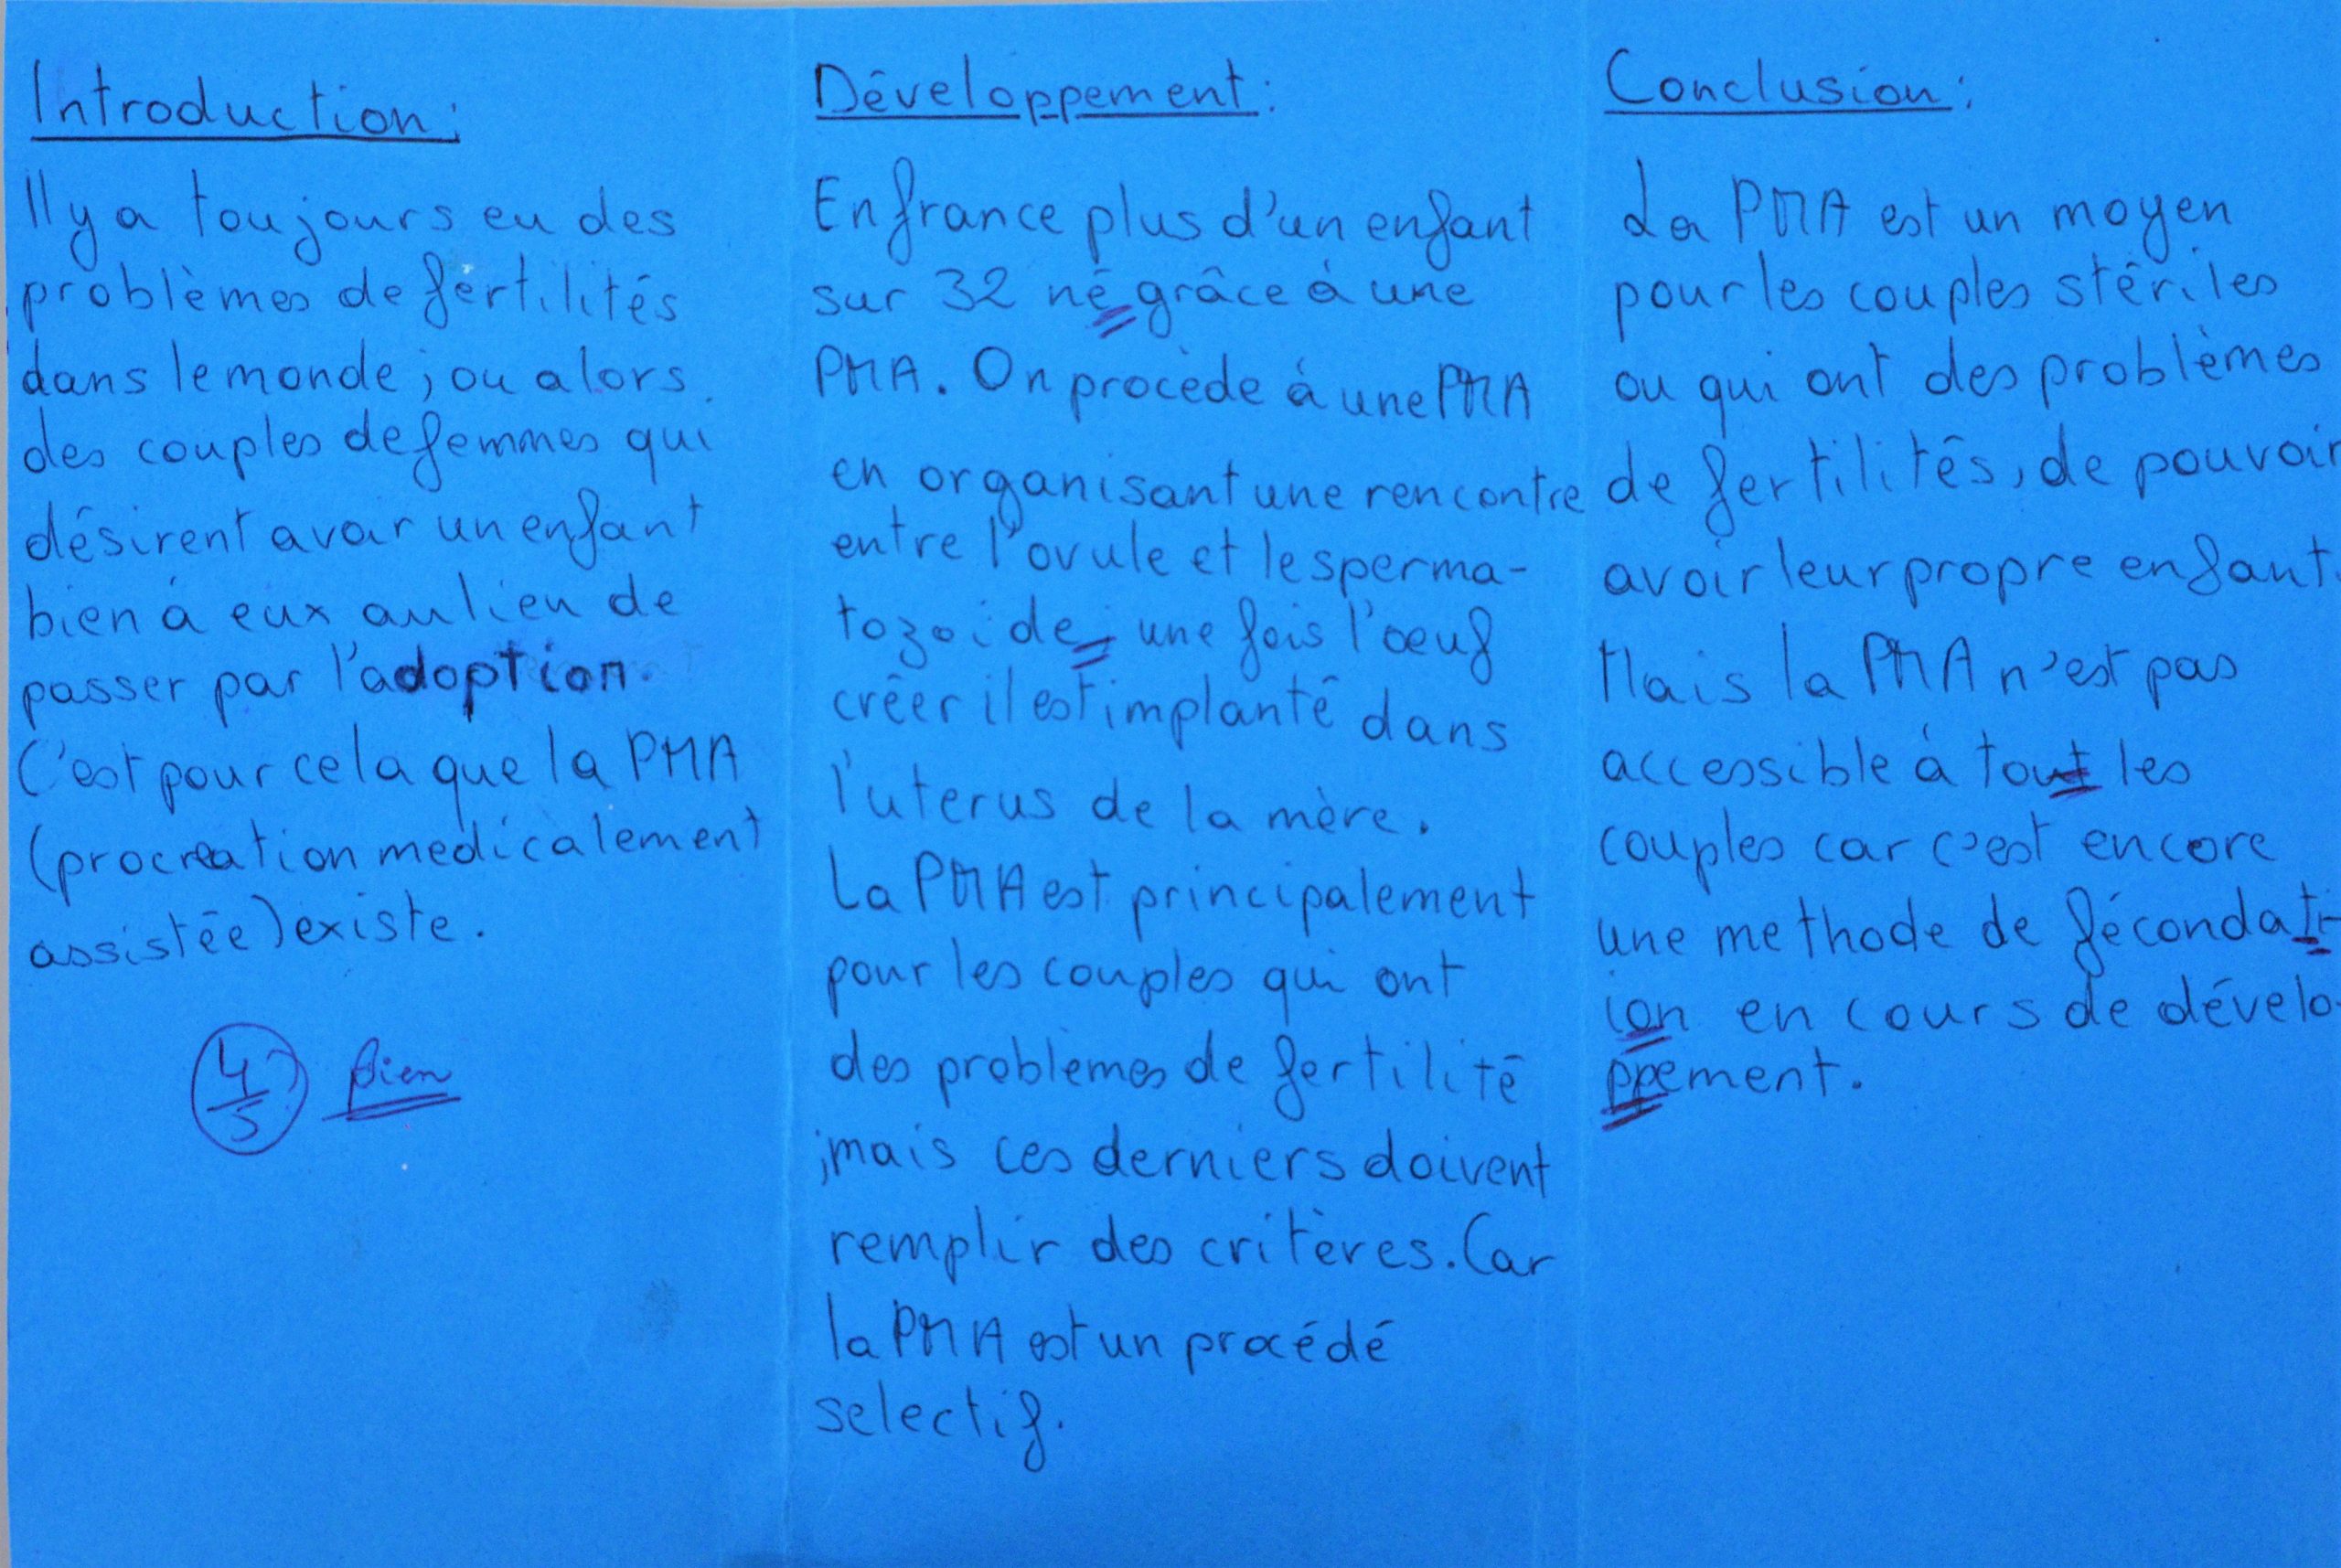 Introduction :
Il y a toujours eu des
problèmes de fertilités
dans le monde ; ou alors
des couples de femmes qui
désirent avoir un enfant
bien à eux au lieu de
passer par l'adoption.
C'est pour cela que la PMA
(procreation medicalement
assistée) existe.
4/5 Bien
Développement :
En france plus d'un enfant
sur 32 né grâce à une
PMA. On procède à une PMA
en organisant une rencontre
entre l'ovule et le sperma-
tozoide, une fois l'œuf
créer il est implanté dans
l'uterus de la mère.
La PMA est principalement
pour les couples qui ont
des problemes de fertilité
;mais ces derniers doivent
remplir des critères. Car
la PMA est un procédé
selectif.
Conclusion :
La PMA est un moyen
pour les couples stériles
ou qui ont des problèmes
de fertilités, de pouvoir
avoir leur propre enfant.
Mais la PMA n'est pas
accessible à tout les
couples car c'est encore
une methode de fécondat-
ion en cours de dévelo-
ppement.